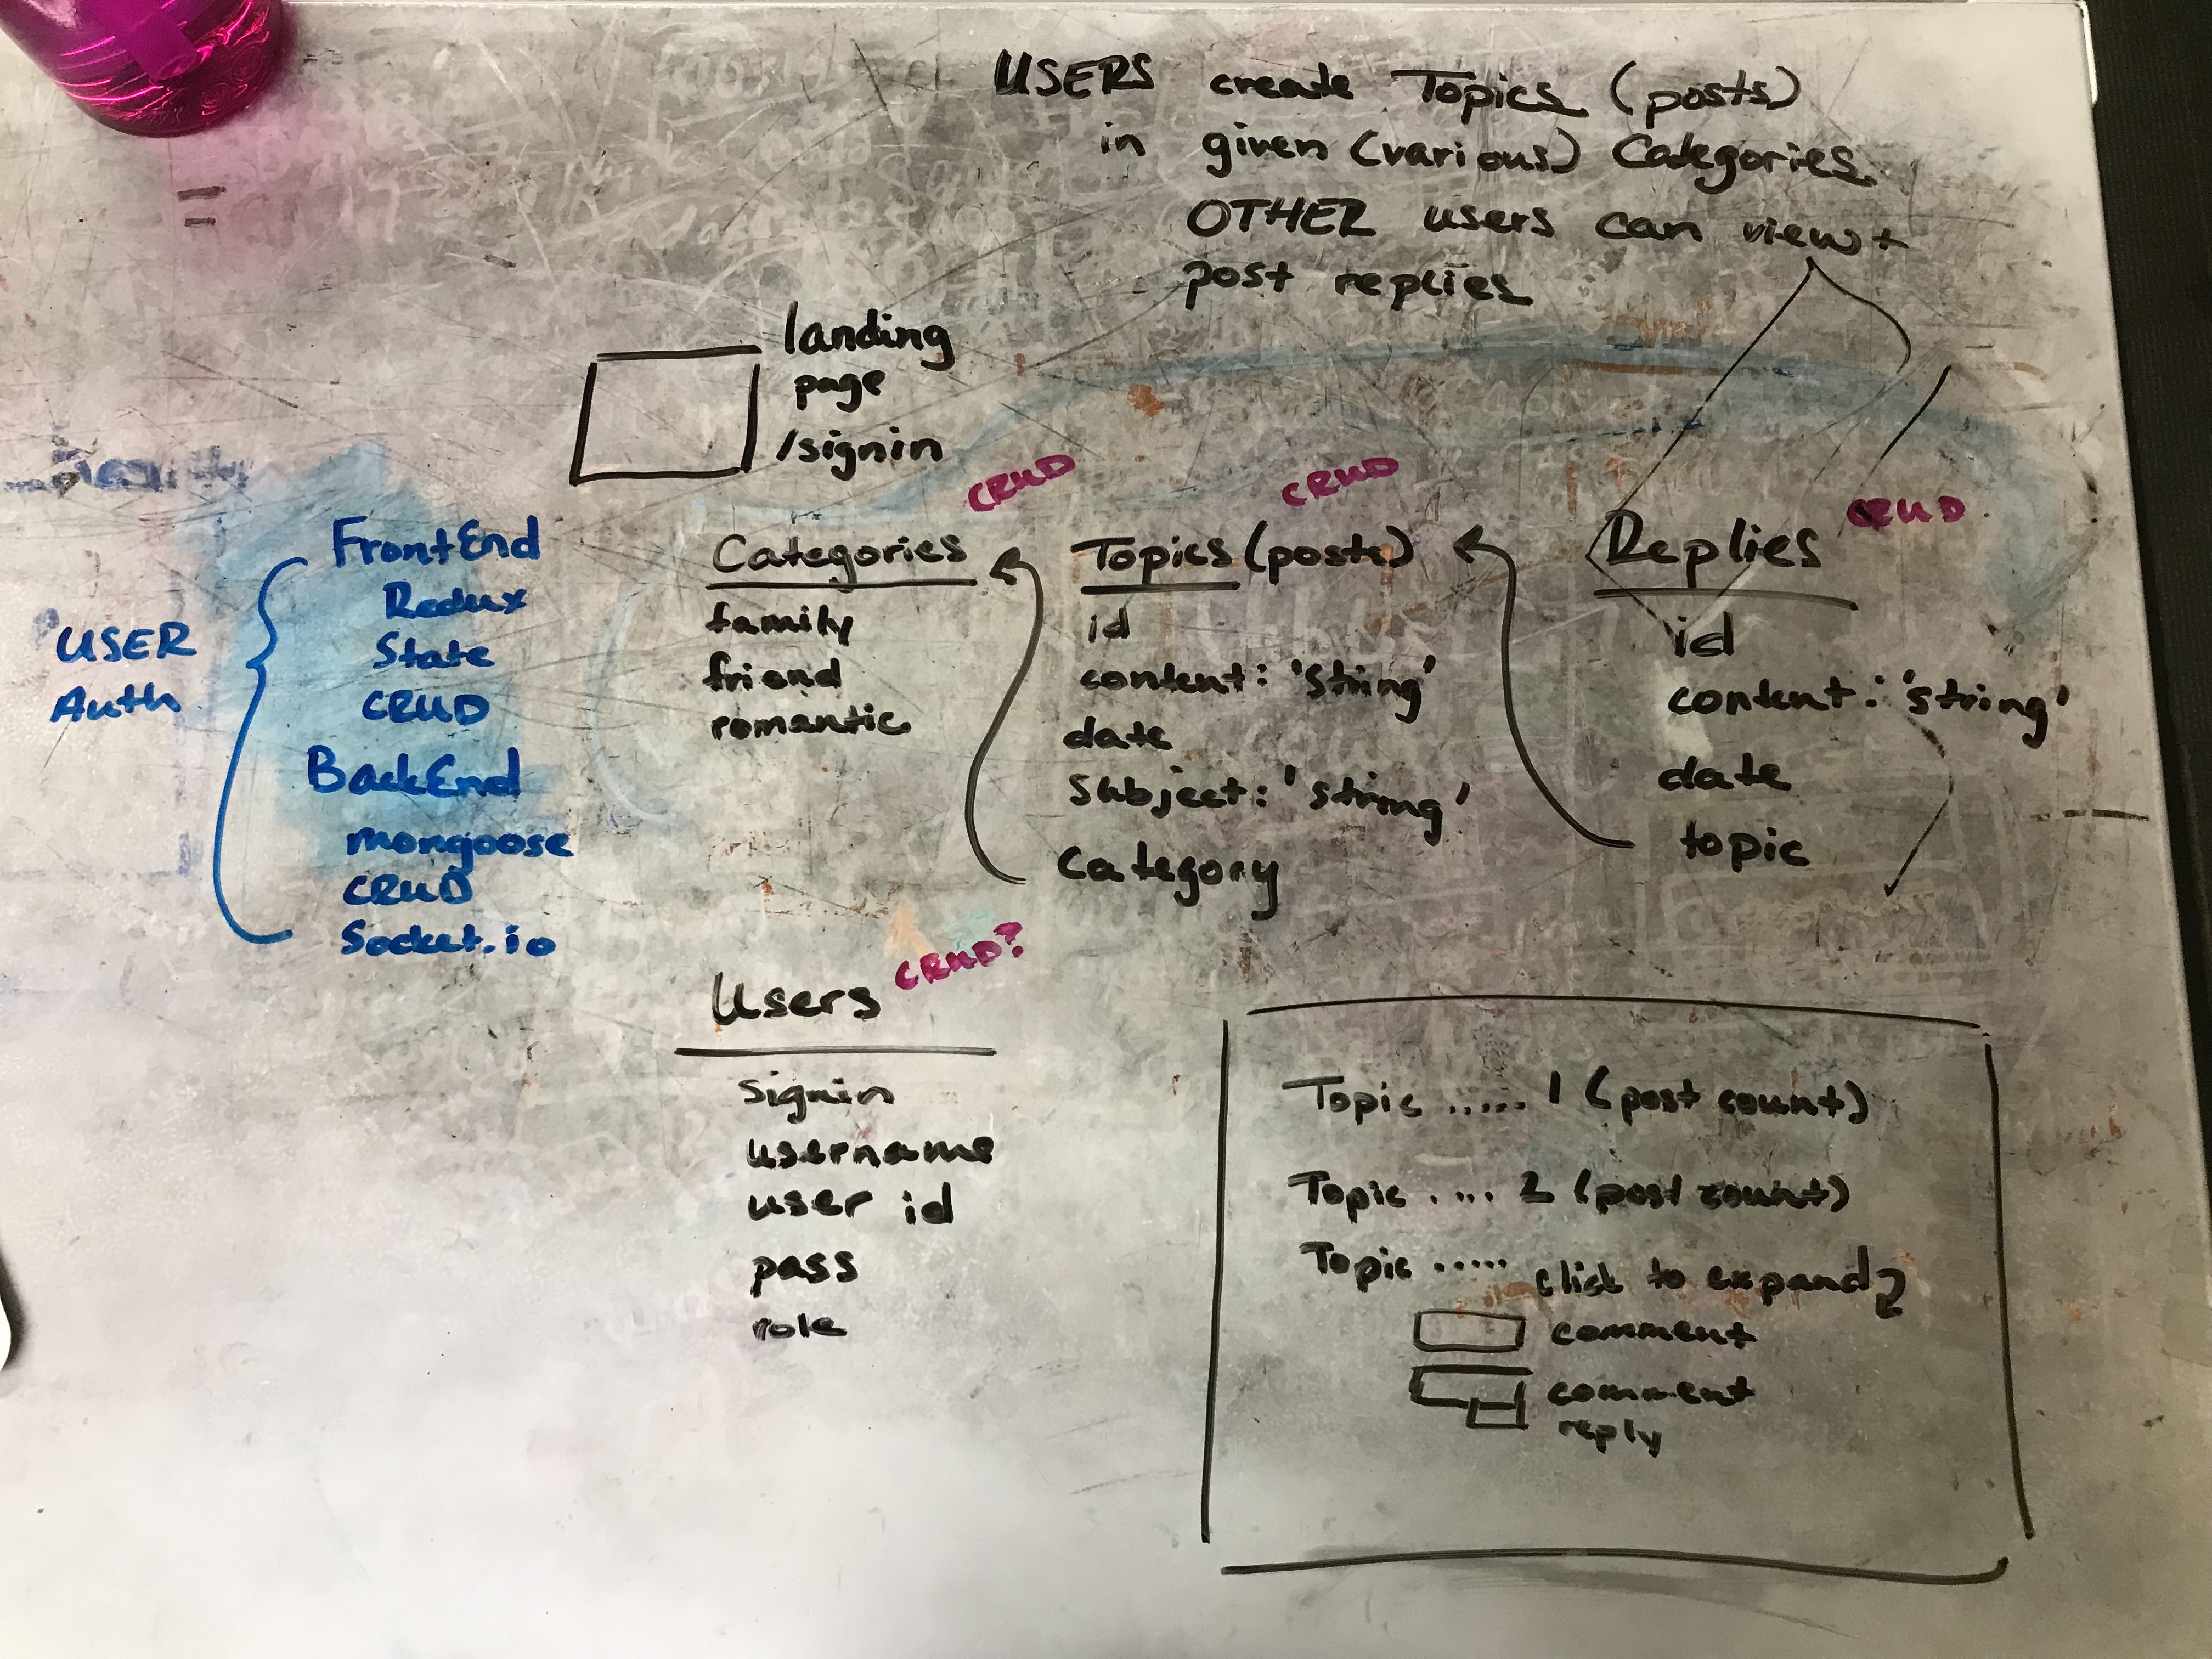 USERS create Topics (posts)
in given (various) Categories
OTHER users can view +
post replies
landing
page
/signin
USER
Auth
FrontEnd
Redux
State
CRUD
BackEnd
mongoose
CRUD
Socket.io
CRUD
Categories
family
friend
romantic
CRUD
Topics (posts)
id
content: 'string'
date
Subject: 'string'
Category
CRUD
Replies
id
content: 'string'
date
topic
CRUD?
Users
signin
username
user id
pass
role
Topic ..... 1 (post count)
Topic .... 2 (post count)
Topic ..... click to expand
comment
comment
reply